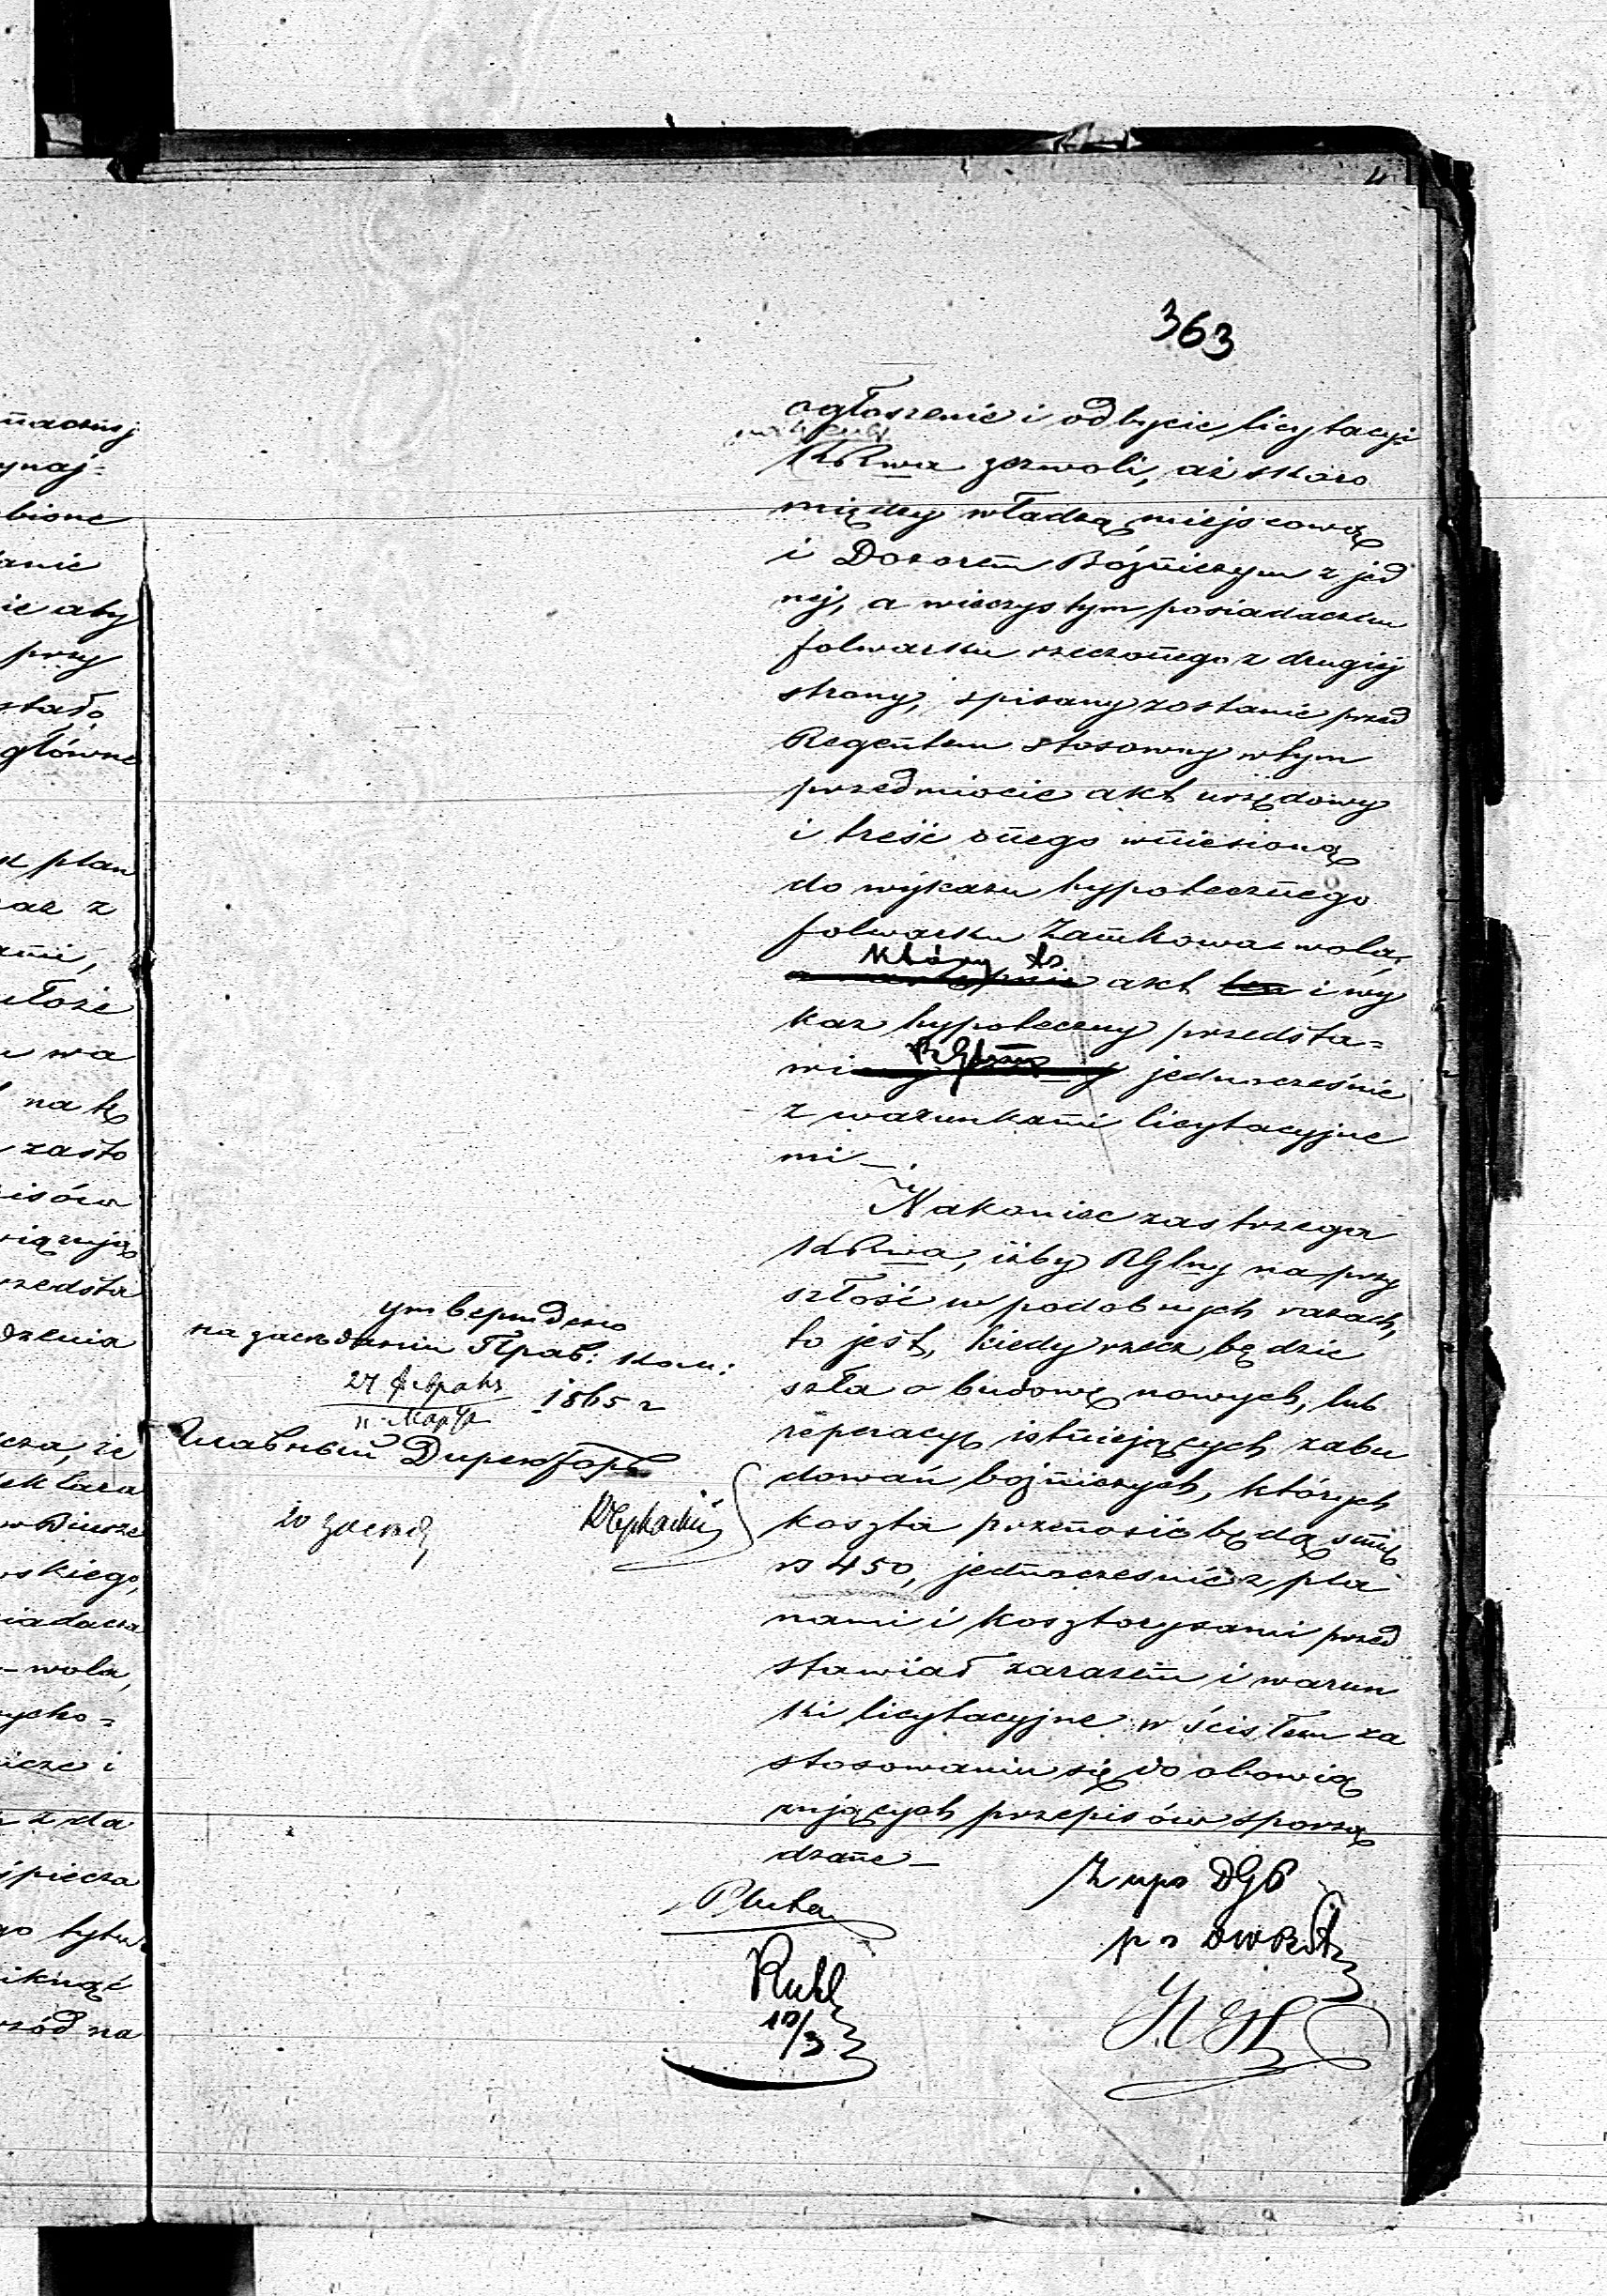 363
ogłoszenie i odbycie licytacyi
KRwa zezwoli, aż skoro
między władzą miejscową
i Dozorem Bóżniczym z jed
nej, a wieczystym posiadaczem
folwarku rzeczonego z drugiej
strony, spisany zostanie przed
Regentem stosowny w tym
przedmiocie akt urzędowy
i treść onego wniesioną
do wykazu hypotecznego
folwarku Zamkowa wola,
który to
akt ten i wy
kaz hypoteczny przedsta=
wi RGlny jednocześnie
z warunkami licytacyjne
mi _
Nakoniec zastrzega
KRwa, iżby RGlny na przy
szłość w podobnych razach,
to jest, kiedy rzecz będzie
szła o budowę nowych, lub
reperacyę istniejących zabu
dowań bożniczych, których
koszta przenosić będą summę
rs 450, jednocześnie z pla
nami i kosztorysami przed
stawiał zarazem i warun
ki licytacyjne w ścisłem za
stosowaniu się do obowią
zujących przepisów sporzą
dzane _
утверждено
на заседании Прав: Ком:
27 февраля
11 Марта 1865 г
Главный Директоръ
Z upo DGP
po DW
Ruhl
10/3
maczniej
ynaj=
bione
anie
ie aby
przy
stało
główne
plan
az z
ami,
ułoże
wa
na tę
zasto
isów
iązują
rzedsta
dzenia
cza, że
klara
w Biurze
skiego,
iadacza
_ wola,
ycho=
icze i
z da
piecza
go tytu
iknąć
zód na